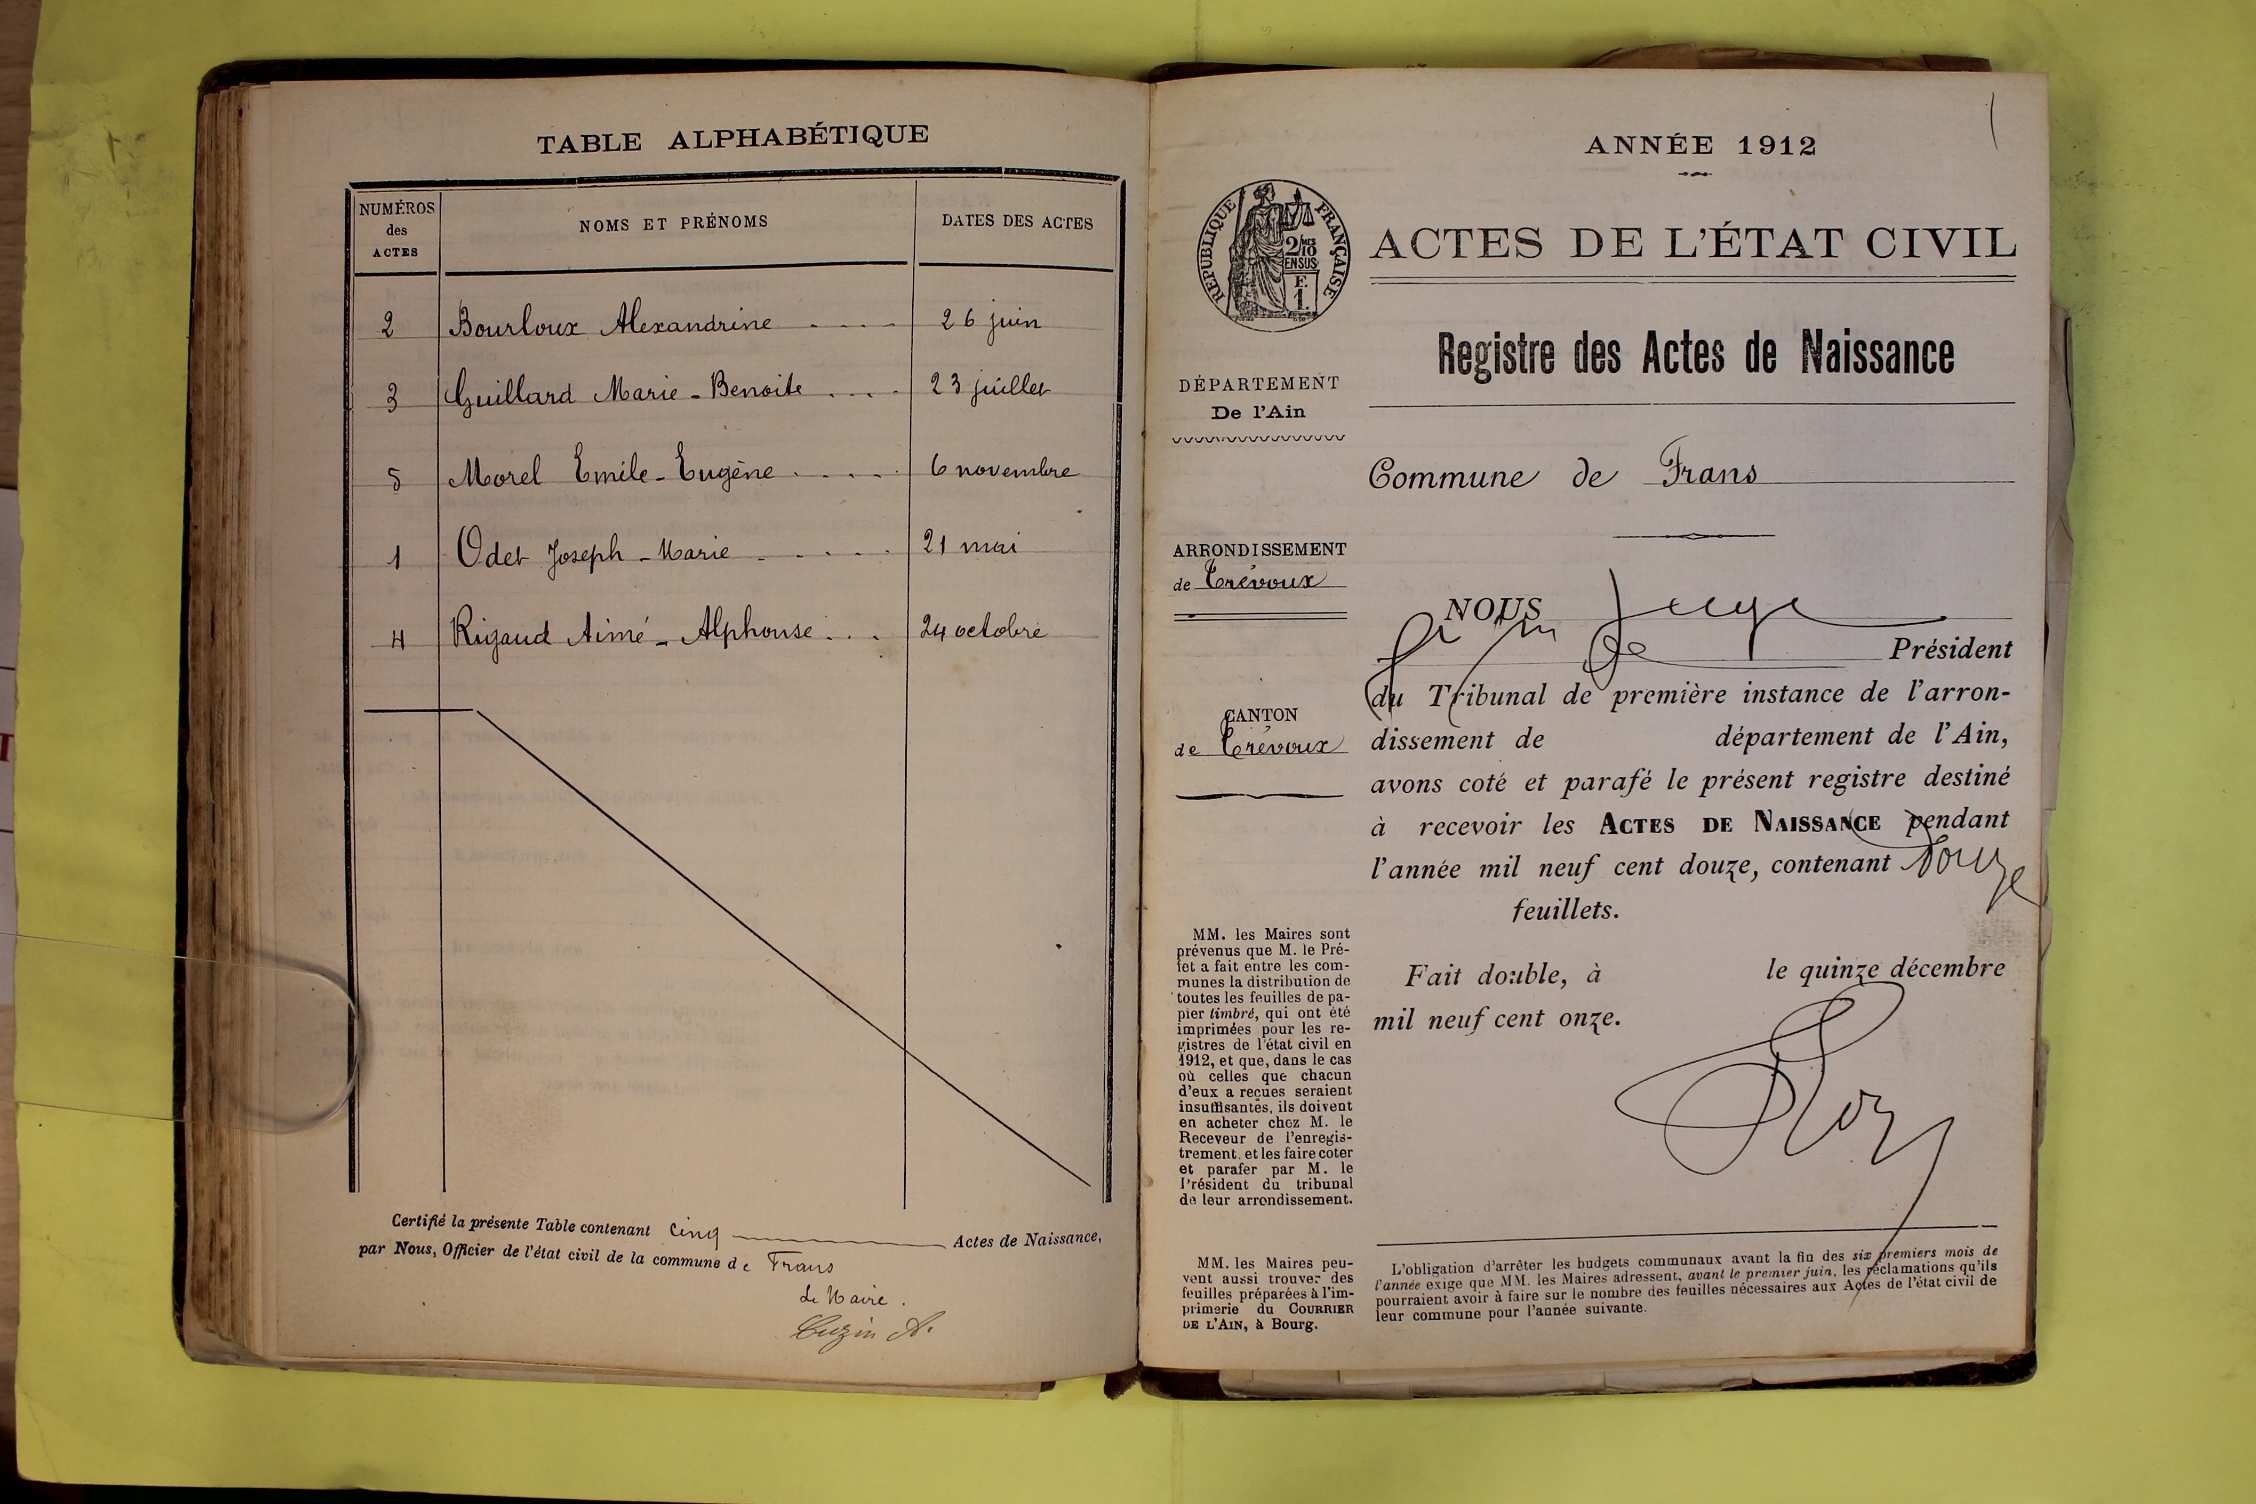 TABLE ALPHABÉTIQUE
NUMÉROS des ACTES NOMS ET PRÉNOMS DATES DES ACTES
2 Bourloux Alexandrine 26 juin
3 Guillard Marie-Benoite 23 juillet
5 Morel Emile-Eugène 6 novembre
1 Odet Joseph-Marie 21 mai
4 Rigaud Aimé-Alphonse 24 octobre
Certifié la présente Table contenant Cinq Actes de Naissance,
par Nous, Officier de l'état civil de la commune de Frans
Le Maire.
Cuzin A.
1
ANNÉE 1912
RÉPUBLIQUE FRANÇAISE
2/10
EN SUS
F.
1
ACTES DE L'ÉTAT CIVIL
Registre des Actes de Naissance
DÉPARTEMENT
De l'Ain
Commune de Frans
ARRONDISSEMENT
de Trévoux
CANTON
de Trévoux
NOUS Juge
Président
du Tribunal de première instance de l'arron-
dissement de département de l'Ain,
avons coté et parafé le présent registre destiné
à recevoir les ACTES DE NAISSANCE pendant
l'année mil neuf cent douze, contenant Douze
feuillets.
Fait double, à le quinze décembre
mil neuf cent onze.
MM. les Maires sont
prévenus que M. le Pré-
fet a fait entre les com-
munes la distribution de
toutes les feuilles de pa-
pier timbré, qui ont été
imprimées pour les re-
gistres de l'état civil en
1912, et que, dans le cas
où celles que chacun
d'eux a reçues seraient
insuffisantes, ils doivent
en acheter chez M. le
Receveur de l'enregis-
trement, et les faire coter
et parafer par M. le
Président du tribunal
de leur arrondissement.
MM. les Maires peu-
vent aussi trouver des
feuilles préparées à l'im-
primerie du COURRIER
DE L'AIN, à Bourg.
L'obligation d'arrêter les budgets communaux avant la fin des six premiers mois de
l'année exige que MM. les Maires adressent, avant le premier juin, les réclamations qu'ils
pourraient avoir à faire sur le nombre des feuilles nécessaires aux Actes de l'état civil de
leur commune pour l'année suivante.